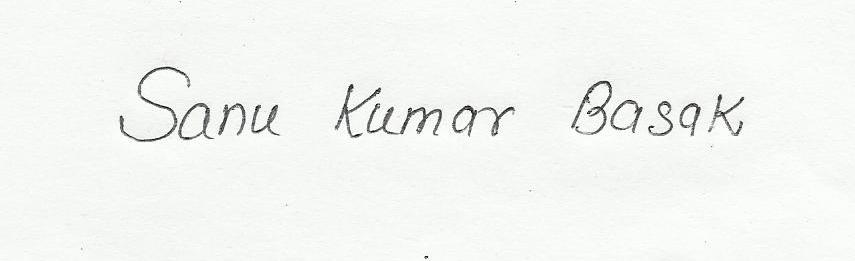 Sanu Kumar Basak